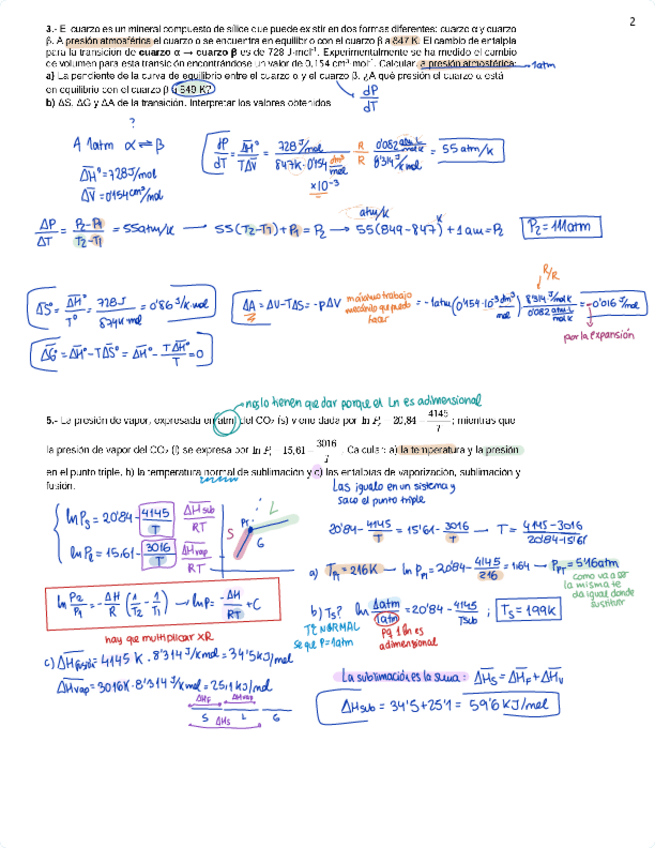 2
3.- El cuarzo es un mineral compuesto de sílice que puede existir en dos formas diferentes: cuarzo α y cuarzo
β. A presión atmosférica el cuarzo α se encuentra en equilibrio con el cuarzo β a 847 K. El cambio de entalpía
para la transición de cuarzo α → cuarzo β es de 728 J·mol⁻¹. Experimentalmente se ha medido el cambio
de volumen para esta transición encontrándose un valor de 0,154 cm³·mol⁻¹. Calcular, a presión atmosférica: → 1atm
a) La pendiente de la curva de equilibrio entre el cuarzo α y el cuarzo β. ¿A qué presión el cuarzo α está
en equilibrio con el cuarzo β a 849 K? → dP/dT
b) ΔS, ΔG y ΔA de la transición. Interpretar los valores obtenidos
?
A 1atm α ⇌ β
ΔH° = 728 J/mol
ΔV = 0'154 cm³/mol
dP/dT = ΔH°/TΔV = 728 J/mol / 847K · 0'154 dm³/mol ×10⁻³ R/R 0'082 atm L/mol K / 8'314 J/K mol = 55 atm/K
ΔP/ΔT = P₂-P₁/T₂-T₁ = 55 atm/K → 55(T₂-T₁)+P₁ = P₂ → 55 atm/K (849-847) K + 1 atm = P₂ P₂ = 111 atm
ΔS° = ΔH°/T° = 728 J / 874 K mol = 0'86 J/K·mol
ΔA = ΔU-TΔS = -pΔV máximo trabajo mecánico que puedo hacer = -1atm (0'154·10⁻³ dm³/mol) 8'314 J/mol K / 0'082 atm L/mol K = -0'016 J/mol
R/R
por la expansión
ΔG = ΔH° - TΔS° = ΔH° - TΔH°/T = 0
nos lo tienen que dar porque el Ln es adimensional
5.- La presión de vapor, expresada en (atm) del CO₂ (s) viene dada por ln P = 20,84 - 4145/T ; mientras que
la presión de vapor del CO₂ (l) se expresa por ln P = 15,61 - 3016/T . Calcular: a) la temperatura y la presión
en el punto triple, b) la temperatura normal de sublimación y c) las entalpías de vaporización, sublimación y
fusión.
Las igualo en un sistema y
saco el punto triple
ln Ps = 20'84 - 4145/T ΔHsub/RT
ln Pl = 15,61 - 3016/T ΔHvap/RT
PT
S
L
G
20'84 - 4145/T = 15'61 - 3016/T → T = 4145-3016 / 20'84-15'61
a) TPT = 216K → ln PPT = 20'84 - 4145/216 = 1'64 → PPT = 5'16 atm
como va a ser
la misma te
da igual donde
sustituir
ln P₂/P₁ = -ΔH/R (1/T₂ - 1/T₁) → ln P = -ΔH/RT + C
hay que multiplicar ×R
b) Ts? ln 1atm/1atm = 20'84 - 4145/Tsub ; Ts = 199K
Tª NORMAL
Se que P=1atm
pq ln es
adimensional
c) ΔHsub = 4145 K · 8'314 J/K mol = 34'5 KJ/mol
ΔHvap = 3016K · 8'314 J/K mol = 25'1 KJ/mol
ΔHF ΔHvap
S L G
ΔHs
La sublimación es la suma: ΔHS = ΔHF + ΔHV
ΔHsub = 34'5 + 25'1 = 59'6 KJ/mol